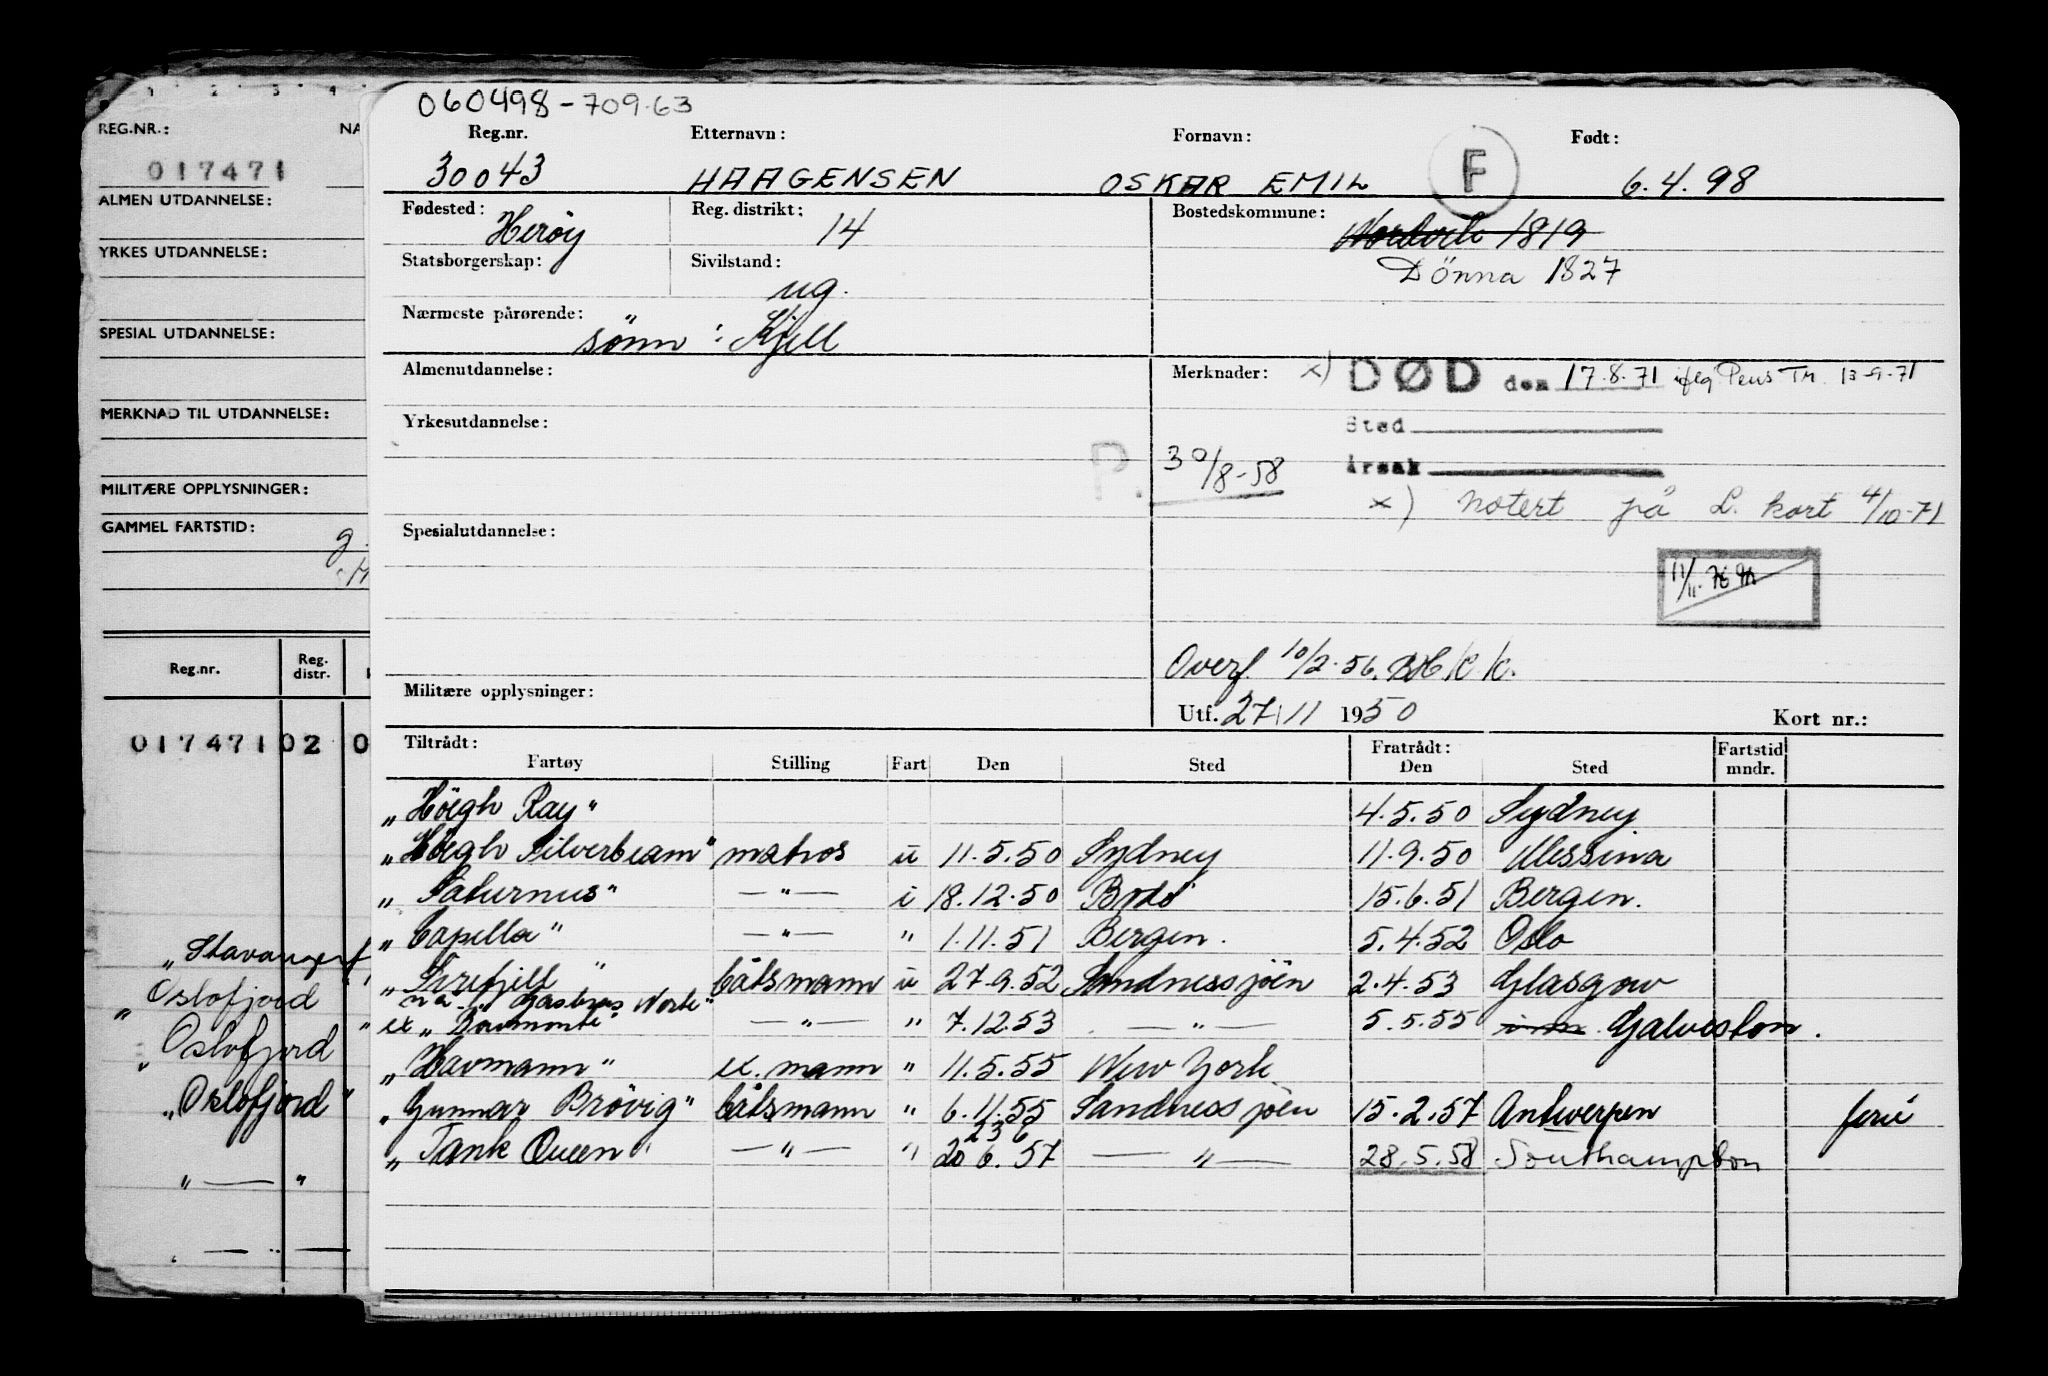 060498-709.63
REG.NR.: NA
Reg.nr. Etternavn: Fornavn: Født:
017471
30043 HAAGENSEN OSKAR EMIL F 6.4.98
ALMEN UTDANNELSE:
Fødested: Herøy Reg. distrikt: 14 Bostedskommune: 1819
YRKES UTDANNELSE:
Statsborgerskap: Sivilstand: ug. Dönna 1827
Nærmeste pårørende: sönn: Kjell
SPESIAL UTDANNELSE:
Almenutdannelse: Merknader: x) DØD den 17.8.71 iflg. Pens Tr. 13-9-71
MERKNAD TIL UTDANNELSE:
Yrkesutdannelse: Sted
P. 30/8-58 Årsak
MILITÆRE OPPLYSNINGER:
x) notert på L. kort 4/10-71
GAMMEL FARTSTID:
Spesialutdannelse:
11/11
Overf. 10/2-56.
Reg.nr. Reg. distr.
Militære opplysninger: Utf. 27/11 1950 Kort nr.:
017471 02 0
Tiltrådt: Fratrådt: Fartstid
Fartøy Stilling Fart Den Sted Den Sted mndr.
„Höegh Ray" 4.5.50 Sydney
„Höegh Silverbeam" matros u 11.5.50 Sydney 11.9.50 Messina
„Saturnus" —"— i 18.12.50 Bodö 15.6.51 Bergen.
„Capella" —"— " 1.11.51 Bergen. 5.4.52 Oslo
„Sirefjell" båtsmann u 27.9.52 Sandnessjöen 2.4.53 Glasgow
nå „ Norte"
ex „ " —"— " 7.12.53 —"— 5.5.55 Galveston.
„Havmann" ex. mann " 11.5.55 New York
„Gunnar Brövig" båtsmann " 6.11.55 Sandnessjöen 15.2.57 Antwerpen ferie
23 6
„Tank Queen" —"— " 20 6.57 —"— 28.5.58 Southampton
„Stavangerf
„Oslofjord "
„Oslofjord "
„Oslofjord"
"—"
"—"—